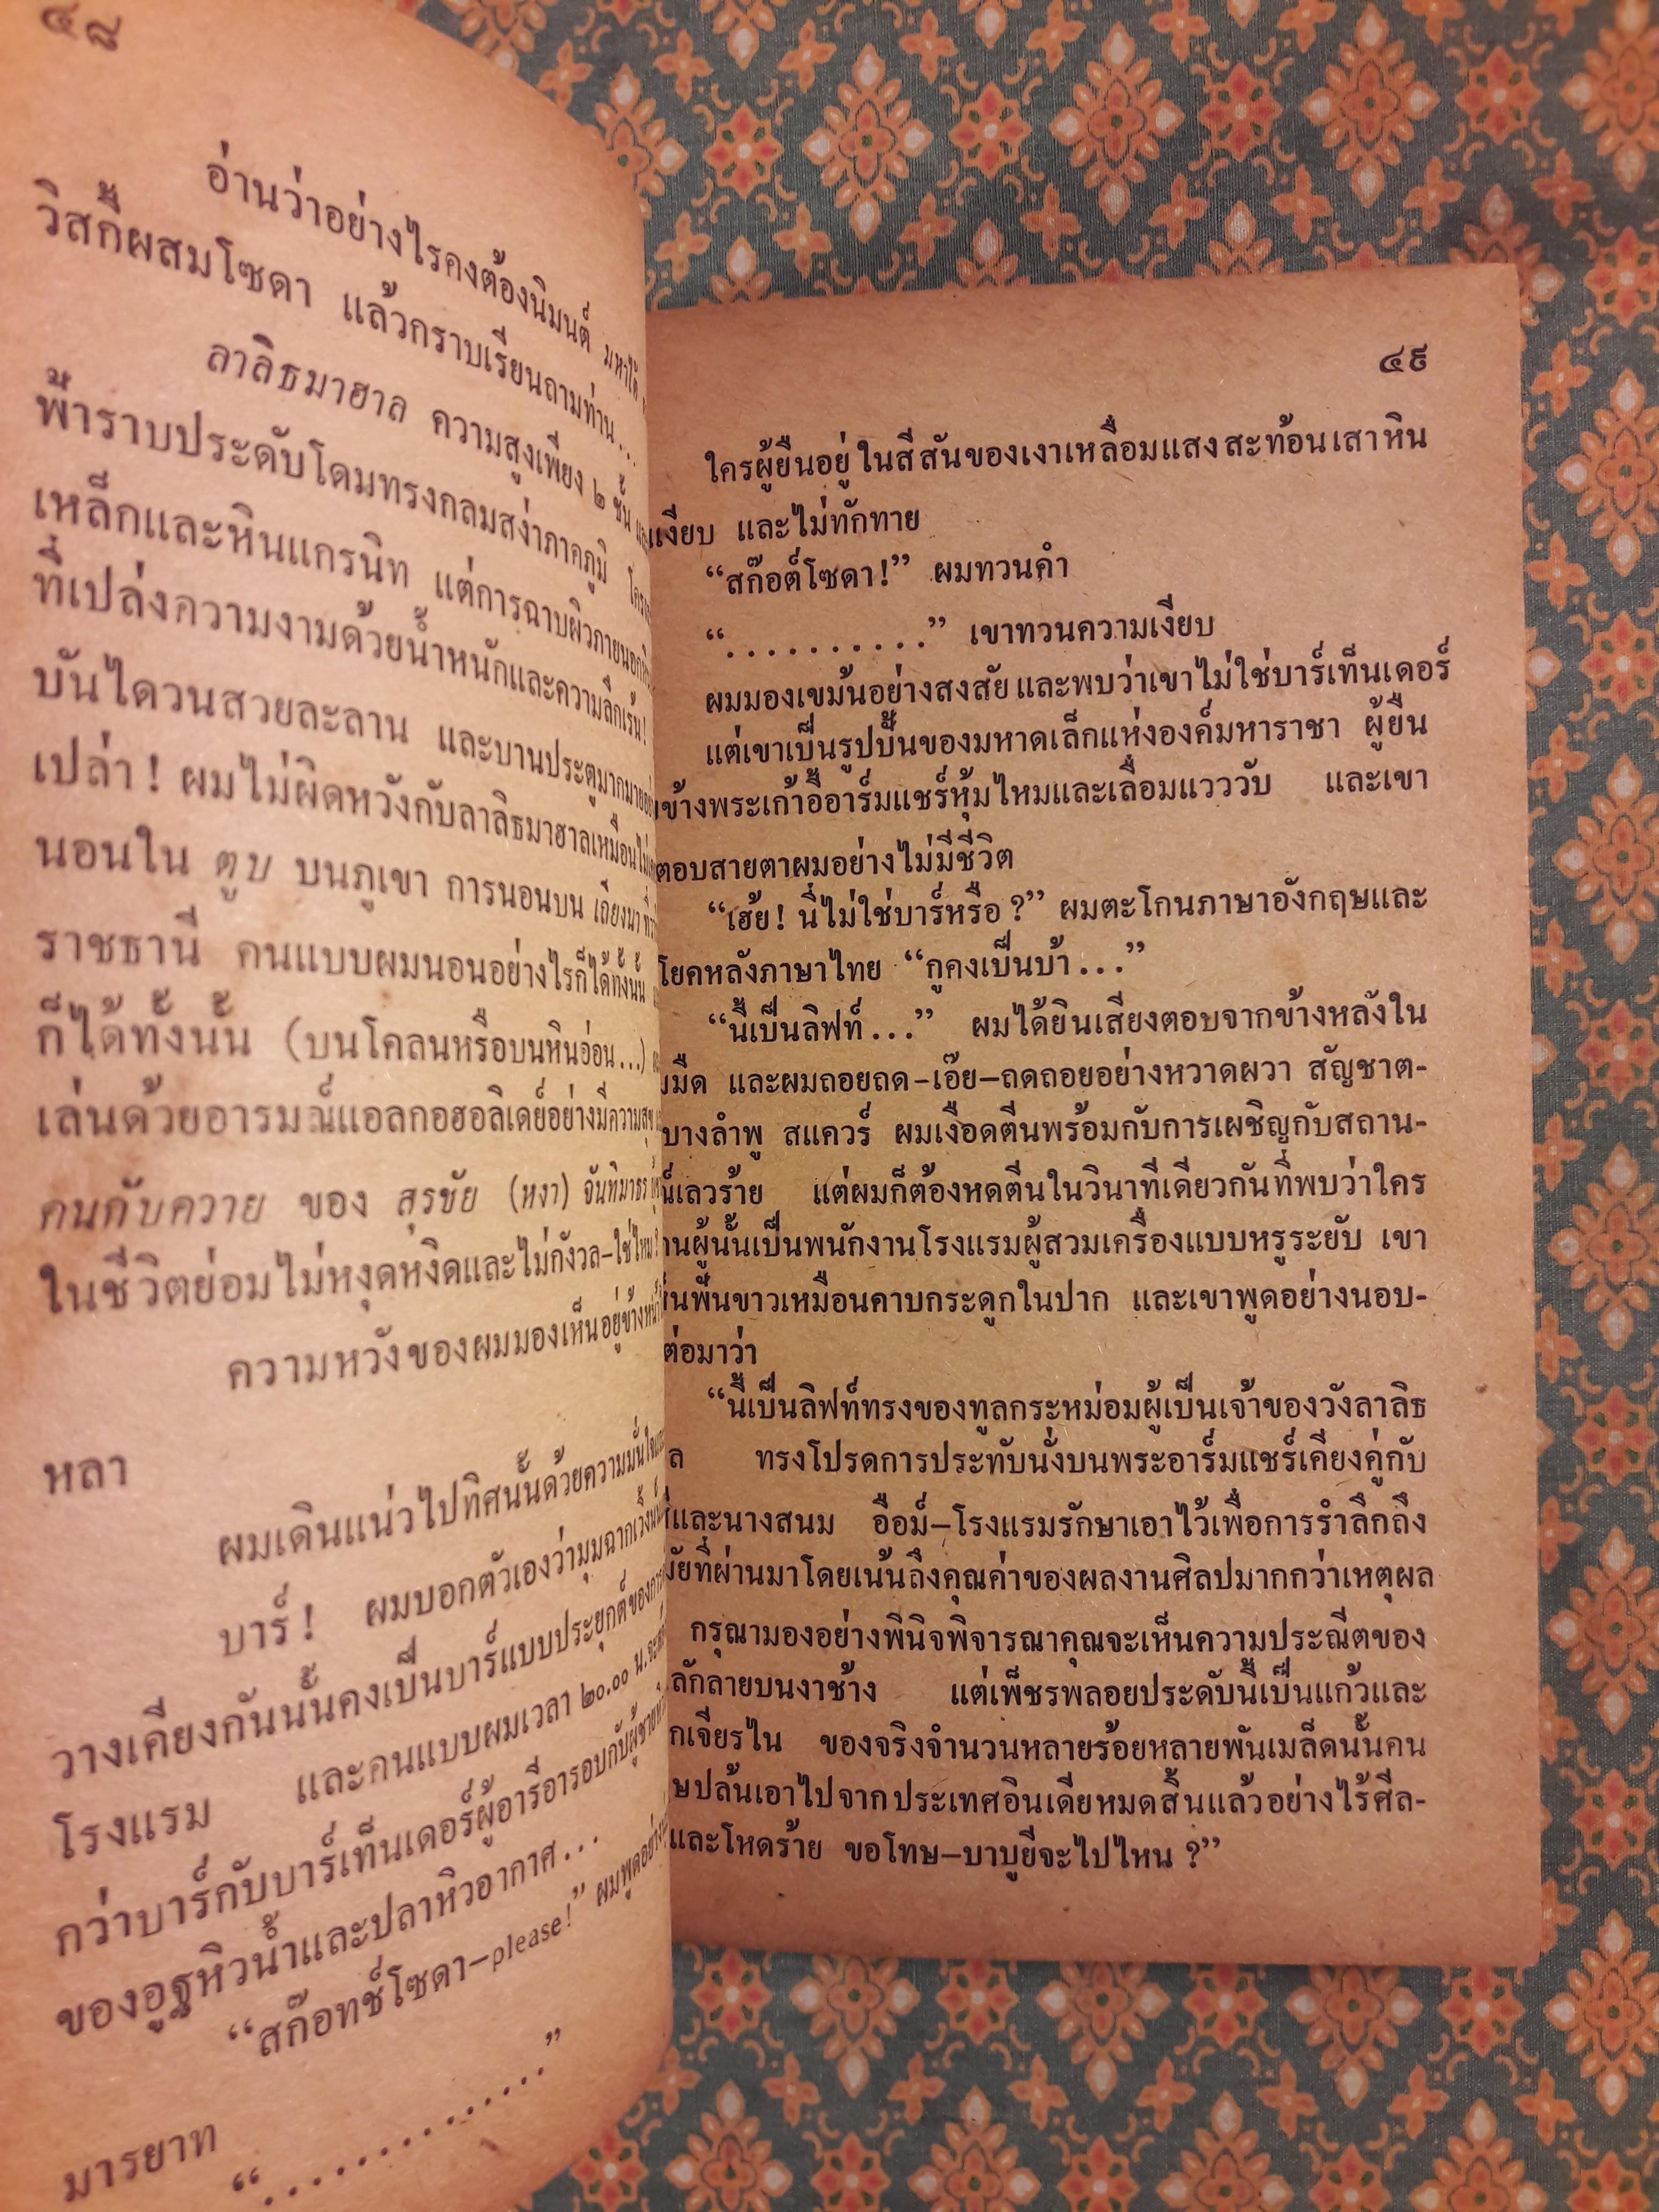 ๔๘
อ่านว่าอย่างไรคงต้องนิมนต์
วิสกี้ผสมโซดา แล้วกราบเรียนถามท่าน...
ลาลิธมาฮาล ความสูงเพียง ๒ ชั้น
พ้าราบประดับโดมทรงกลมสง่าภาคภูมิ
เหล็กและหินแกรนิท แต่การฉาบผิวภายนอก
ที่เปล่งความงามด้วยน้ำหนักและความลึกเร้น!
บันไดวนสวยละลาน และบานประตูมากมาย
เปล่า! ผมไม่ผิดหวังกับลาลิธมาฮาลเหมือน
นอนใน ตูบ บนภูเขา การนอนบน เถียงนา
ราชธานี คนแบบผมนอนอย่างไรก็ได้ทั้งนั้น
ก็ได้ทั้งนั้น (บนโคลนหรือบนหินอ่อน...)
เล่นด้วยอารมณ์แอลกอฮอลิเดย์อย่างมีความสุข
คนกับควาย ของ สุรชัย (หงา) จันทิมาธร
ในชีวิตย่อมไม่หงุดหงิดและไม่กังวล–ใช่ไหม?
ความหวังของผมมองเห็นอยู่ข้างหน้า
หลา
ผมเดินแน่วไปทิศนั้นด้วยความมั่นใจ
บาร์! ผมบอกตัวเองว่ามุมฉากเวิ้ง
วางเคียงกันนั้นคงเป็นบาร์แบบประยุกต์ของการ
โรงแรม และคนแบบผมเวลา ๒๐.๐๐ น.จะ
กว่าบาร์กับบาร์เท็นเดอร์ผู้อารีอารอบกับผู้ชาย
ของอูฐหิวน้ำและปลาหิวอากาศ...
“สก๊อทช์โซดา–please!” ผมพูดอย่าง
มารยาท
“..............”
๔๙
ใครผู้ยืนอยู่ในสีสันของเงาเหลื่อมแสงสะท้อนเสาหิน
เงียบ และไม่ทักทาย
“สก๊อต์โซดา!” ผมทวนคำ
“..........” เขาทวนความเงียบ
ผมมองเขม้นอย่างสงสัยและพบว่าเขาไม่ใช่บาร์เท็นเดอร์
แต่เขาเป็นรูปปั้นของมหาดเล็กแห่งองค์มหาราชา ผู้ยืน
ข้างพระเก้าอี้อาร์มแชร์หุ้มไหมและเลื่อมแวววับ และเขา
ตอบสายตาผมอย่างไม่มีชีวิต
“เฮ้ย! นี่ไม่ใช่บาร์หรือ?” ผมตะโกนภาษาอังกฤษและ
โยคหลังภาษาไทย “กูคงเป็นบ้า...”
“นี้เป็นลิฟท์...” ผมได้ยินเสียงตอบจากข้างหลังใน
มืด และผมถอยถด-เอ๊ย–ถดถอยอย่างหวาดผวา สัญชาต-
บางลำพู สแควร์ ผมเงือดตีนพร้อมกับการเผชิญกับสถาน-
เลวร้าย แต่ผมก็ต้องหดตีนในวินาทีเดียวกันที่พบว่าใคร
านผู้นั้นเป็นพนักงานโรงแรมผู้สวมเครื่องแบบหรูระยับ เขา
ฟันขาวเหมือนคาบกระดูกในปาก และเขาพูดอย่างนอบ-
ต่อมาว่า
“นี้เป็นลิฟท์ทรงของทูลกระหม่อมผู้เป็นเจ้าของวังลาลิธ
ล ทรงโปรดการประทับนั่งบนพระอาร์มแชร์เคียงคู่กับ
และนางสนม อือม์–โรงแรมรักษาเอาไว้เพื่อการรำลึกถึง
ัยที่ผ่านมาโดยเน้นถึงคุณค่าของผลงานศิลปมากกว่าเหตุผล
กรุณามองอย่างพินิจพิจารณาคุณจะเห็นความประณีตของ
ลักลายบนงาช้าง แต่เพ็ชรพลอยประดับนี้เป็นแก้วและ
กเจียรไน ของจริงจำนวนหลายร้อยหลายพันเมล็ดนั้นคน
ษปล้นเอาไปจากประเทศอินเดียหมดสิ้นแล้วอย่างไร้ศีล-
และโหดร้าย ขอโทษ–บาบูยีจะไปไหน?”